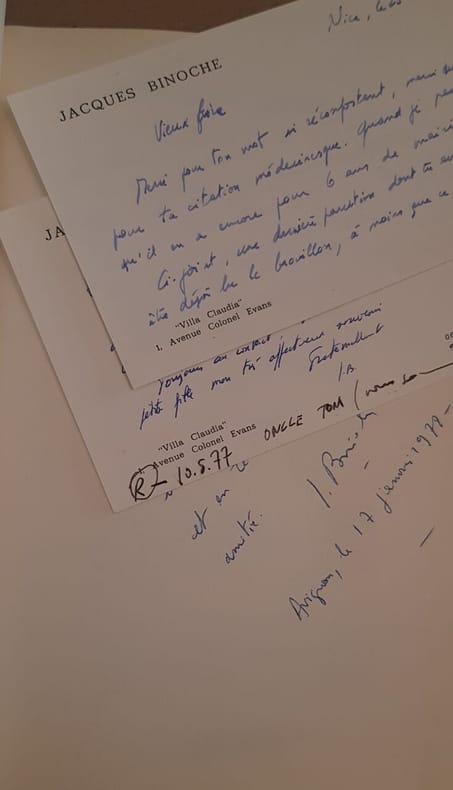 Nice, le
JACQUES BINOCHE
Vieux frère
Merci pour ton mot si réconfortant, merci
pour ta citation médecinesque. Quand je
qu'il en a encore pour 6 ans de
Ci-joint, une dernière parution dont tu
être déjà lu le brouillon, à moins que ce
"Villa Claudia"
1, Avenue Colonel Evans
JA
Toujours en contact
petite fille mon très affectueux souvenir
Fraternellement
J.B.
"Villa Claudia"
Avenue Colonel Evans
R - 10.8.77 ONCLE TOM (
et en
amitié.
J. Binoche
Avignon, le 17 janvier 1978 -